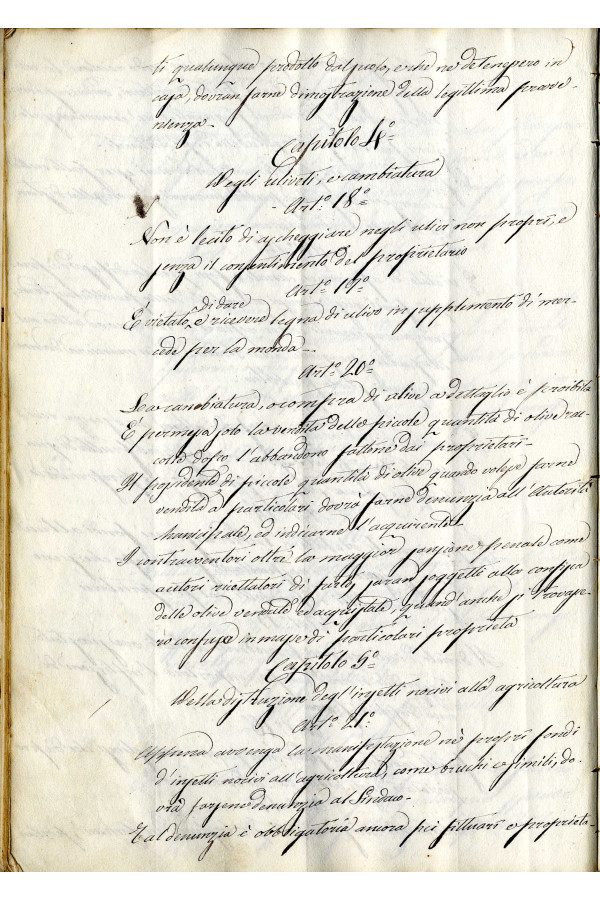 ti qualunque prodotto dal suolo, e che ne detenessero in
casa, dovran farne dimostrazione della legittima prove-
nienza -
Capitolo 4°
Degli uliveti, e cambiatura
Art.° 18°
Non è lecito di ascheggiare negli ulivi non proprj, e
senza il consentimento del proprietario
Art.° 19°
di dare
È vietato e ricevere legna di ulivo in supplemento di mer-
cede per la monda -
Art.° 20°
La cambiatura, o compra di olive a dettaglio è proibita
È permessa solo la vendita delle picole quantità di olive rac-
colte dopo l'abbandono fattone dai proprietari -
Il possidente di picole quantità di olive quando volesse farne
vendita a particolari dovrà farne denunzia all'Autorità
Municipale, ed indicarne l'acquirente
I contravventori oltre la maggior sanzione penale come
autori ricettatori di furto, saran soggetti alla confisca
delle olive vendute ed acquistate, quand'anche si trovasse-
ro confuse in masse di particolari proprietà
Capitolo 5°
Della distruzione degl'insetti nocivi alla agricoltura
Art.° 21°
Appena avvenga la manifestazione né proprj fondi
d'insetti nocivi all'agricoltura, come bruchi e simili, do-
vrà farsene denunzia al Sindaco -
Tal denunzia è obbligatoria ancora pei fittuarj e proprieta-